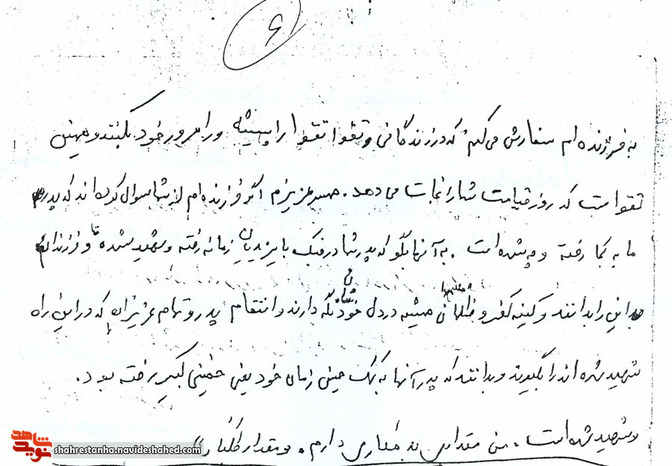 ۶
به فرزنده ام سفارش می کنم که در زندگانی و تقوا تقوا را پیشه و را مرور خود بکنند و همین
تقوا است که روز قیامت شما را نجات می دهد. همسر عزیزم اگر فرزنده ام از شما سوال کرده اند که پدر
ما به کجا رفته و چه شده است. به آنها بگو که پدر شما در جنگ با یزیدیان زمانه رفته و شهید شده تا فرزندانم
این را بدانند و کینه کفر و ظالمان همیشه در دل خودشان نگه دارند و انتقام پدر و تمام عزیزان که در این راه
شهید شده اند را بگیرند و بدانند که پدر آنها به کمک حسین زمان خود یعنی خمینی کبیر رفته بود.
و شهید شده است. من مقداری بدهکاری دارم. و مقدار طلبکار
نوید شاهد
shahrestanha.navideshahed.com